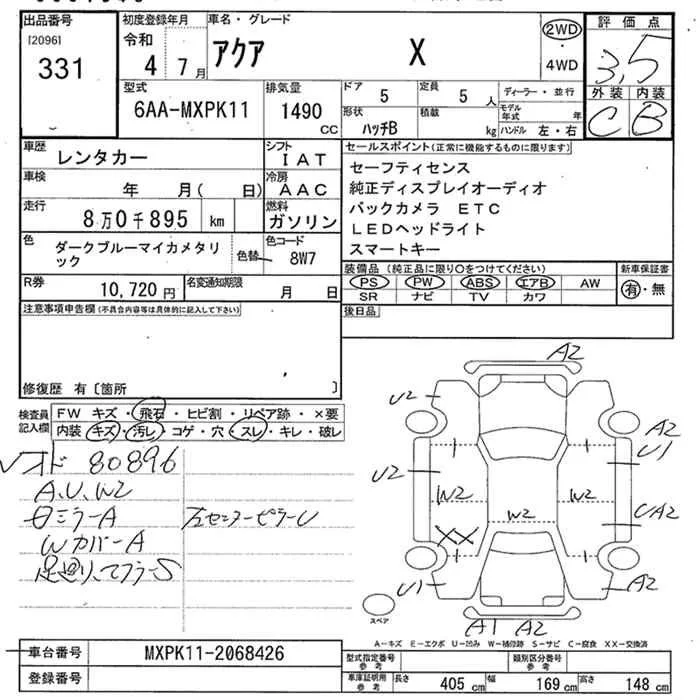 出品番号
[2096]
331
初度登録年月
令和
4 7月
車名・グレード
アクア X
2WD
・
4WD
評価点
3.5
外装 内装
C B
型式
6AA-MXPK11
排気量
1490
cc
ドア
5
定員
5 人
形状
ハッチB
積載
kg
ディーラー・並行
モデル年式 年
ハンドル 左・右
車歴
レンタカー
シフト
IAT
車検
年 月( 日)
冷房
AAC
走行
8万0千895 km
燃料
ガソリン
色
ダークブルーマイカメタリ
ック
色替
色コード
8W7
R券
10,720円
名変通知期限
月 日
セールスポイント(正常に機能するものに限ります)
セーフティセンス
純正ディスプレイオーディオ
バックカメラ ETC
LEDヘッドライト
スマートキー
装備品(純正品に限り○をつけてください)
PS PW ABS エアB AW
SR ナビ TV カワ
新車保証書
有・無
後日品
注意事項申告欄(不具合内容等は具体的に記入して下さい)
修復歴 有〔箇所 〕
検査員
記入欄
FW キズ・飛石・ヒビ割・リペア跡・×要
内装 キズ・汚レ・コゲ・穴・スレ・キレ・破レ
80896
A、U、W2
ミラーA
左センターピラーU
WカバーA
足廻り、マフラーS
A2
U2
A2
U1
U2
W2
W2
UA2
W2
XX
U1
A2
A1 A2
スペア
A-キズ E-エクボ U-凹み W-補修跡 S-サビ C-腐食 XX-交換済
車台番号
MXPK11-2068426
登録番号
型式指定番号
参考
類別区分番号
参考
車庫証明用
参考
長さ 405 cm
幅 169 cm
高さ 148 cm